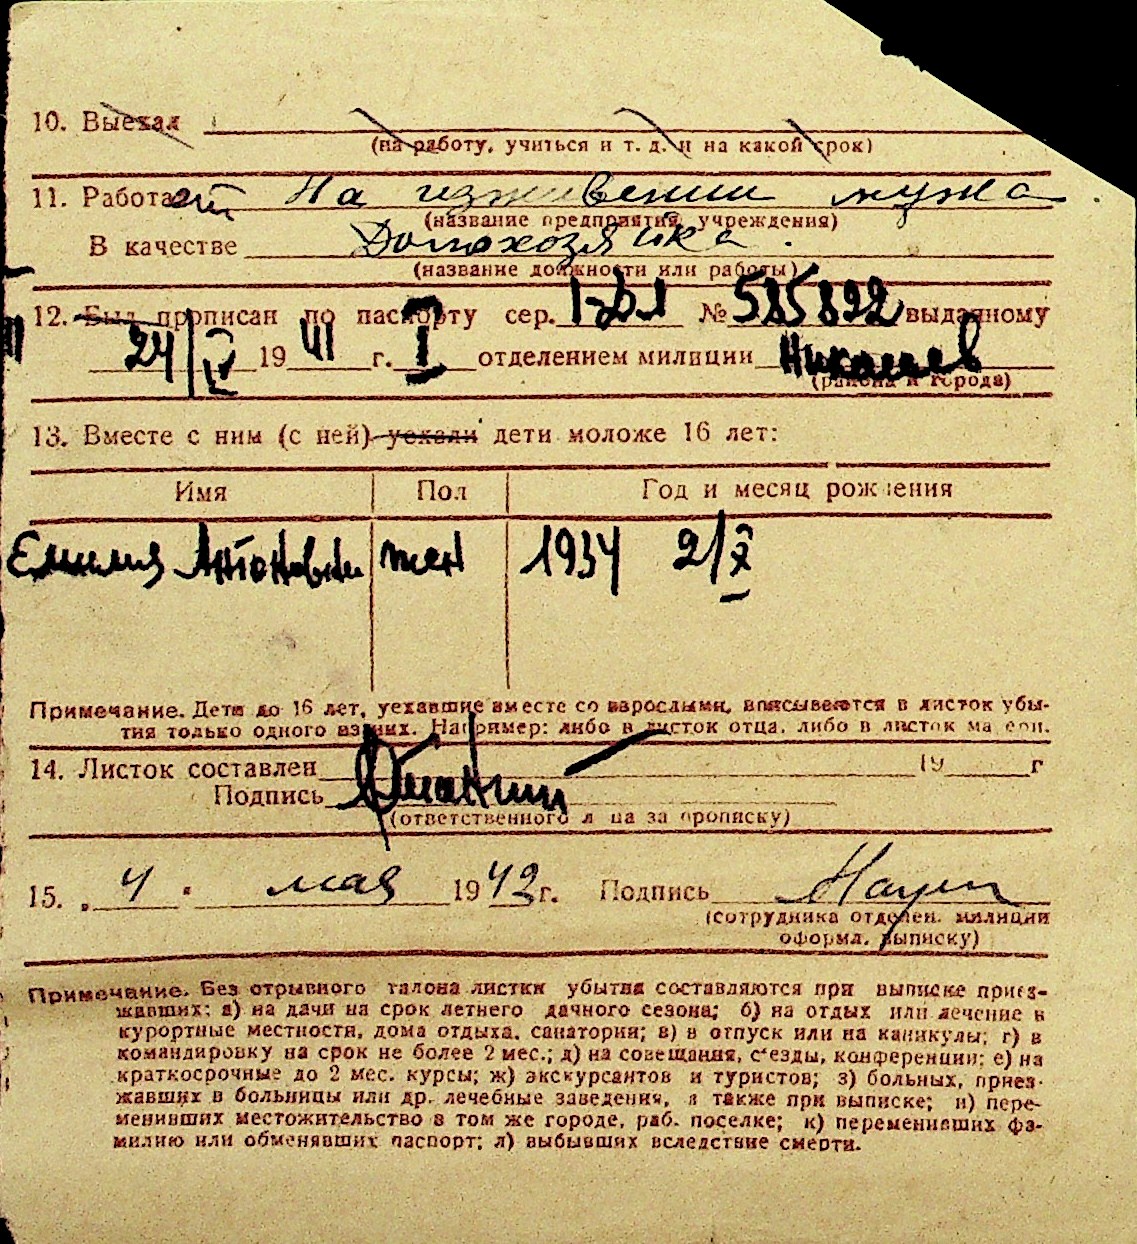 10. Выехал
(на работу, учиться и т. д. и на какой срок)
11. Работает На иждивении мужа
(название предприятия, учреждения)
В качестве Домохозяйка.
(название должности или работы)
12. Был прописан по паспорту сер. № 585892 выданному
24/IV 1941 г. I отделением милиции Николаев
(района и города)
13. Вместе с ним (с ней) уехали дети моложе 16 лет:
Имя Пол Год и месяц рождения
Емилия Антоновна жен 1934 2/X
Примечание. Дети до 16 лет, уехавшие вместе со взрослыми, вписываются в листок убы-
тия только одного из них. Например: либо в листок отца, либо в листок матери.
14. Листок составлен 19 г
Подпись
(ответственного лица за прописку)
15. 4. мая 1942 г. Подпись
(сотрудника отделен. милиции
оформл. выписку)
Примечание. Без отрывного талона листки убытия составляются при выписке приез-
жавших: а) на дачи на срок летнего дачного сезона; б) на отдых или лечение в
курортные местности, дома отдыха, санатории; в) в отпуск или на каникулы; г) в
командировку на срок не более 2 мес.; д) на совещания, съезды, конференции; е) на
краткосрочные до 2 мес. курсы; ж) экскурсантов и туристов; з) больных, приез-
жавших в больницы или др. лечебные заведения, а также при выписке; и) пере-
менивших местожительство в том же городе, раб. поселке; к) переменивших фа-
милию или обменявших паспорт; л) выбывших вследствие смерти.